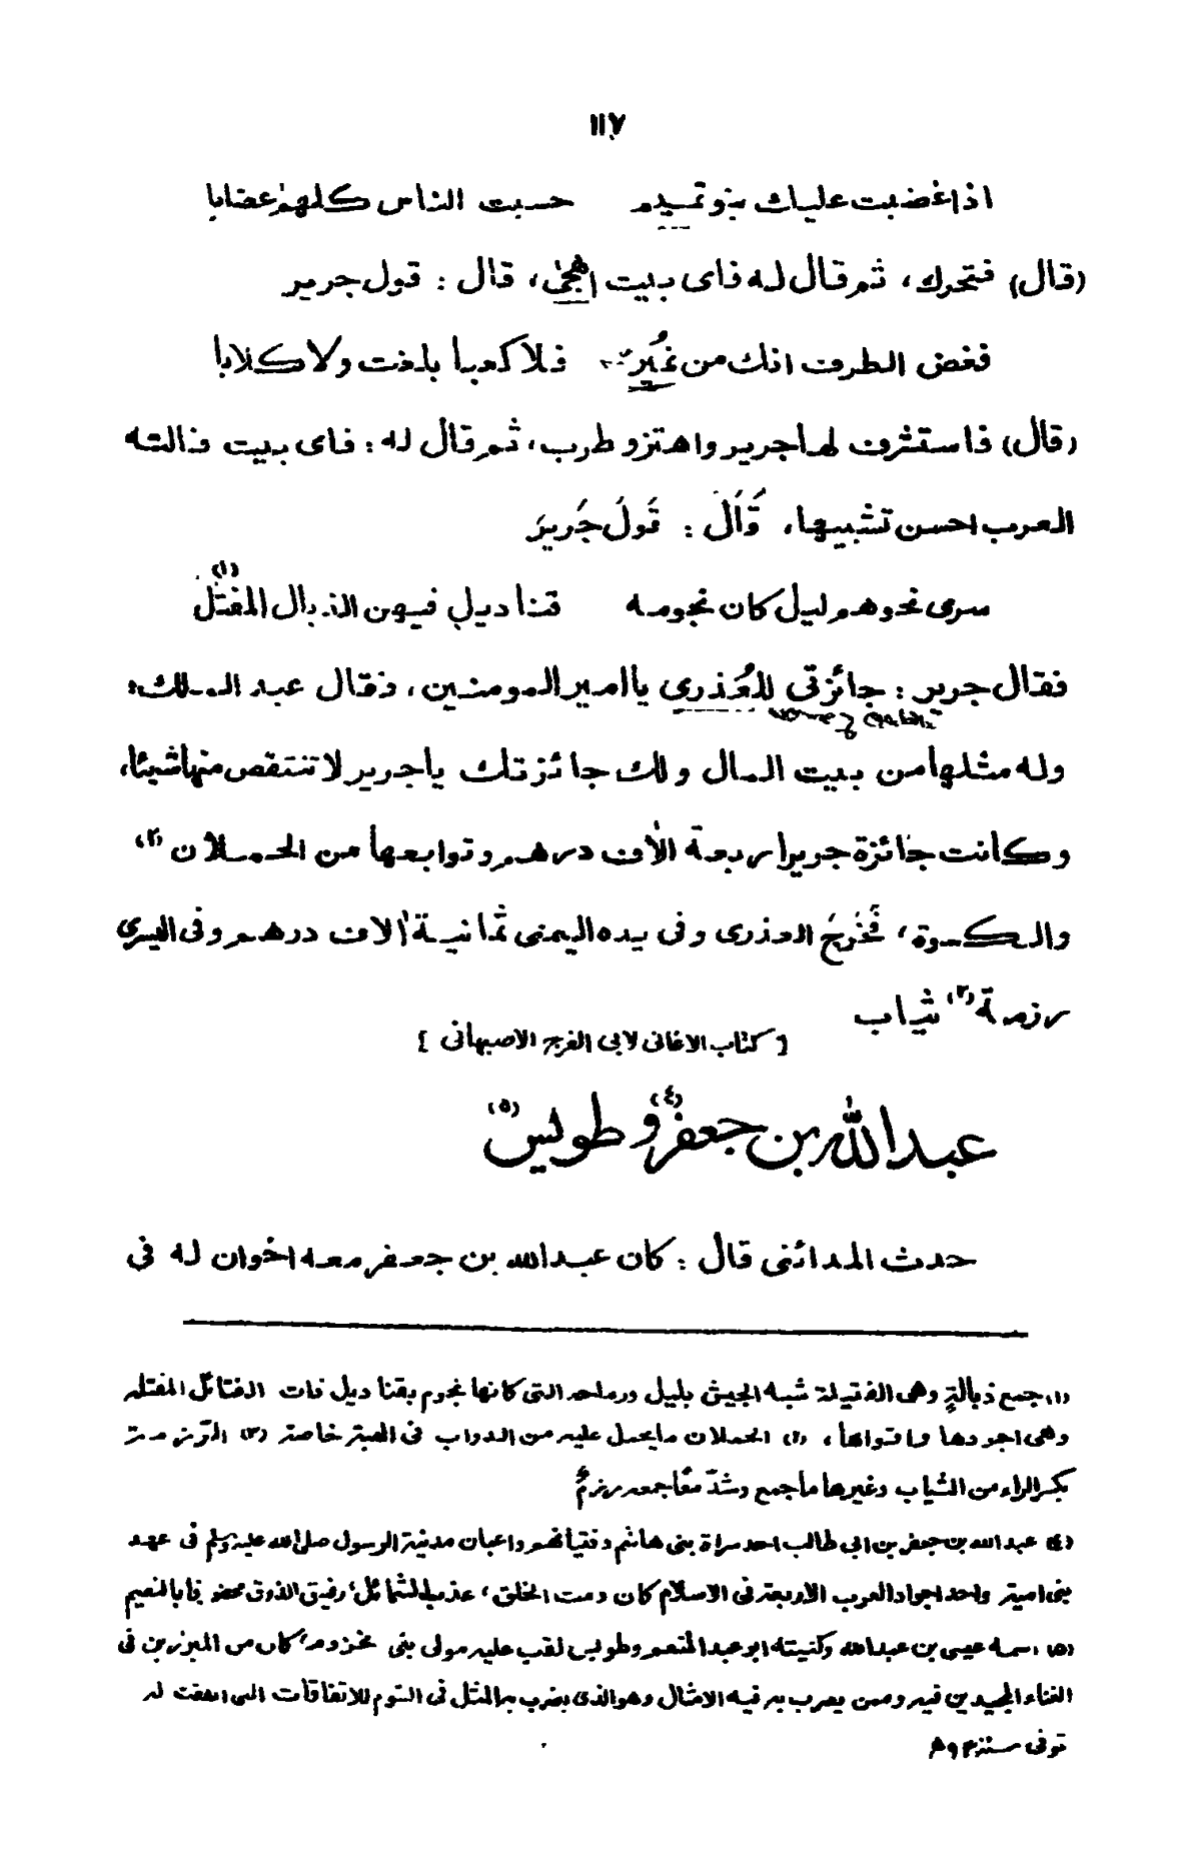 ١١٧
اذا غضبت عليك بنو تميم حسبت الناس كلهم غضابا
(قال) فتحرك، ثم قال له فاى بيت اهجى، قال : قول جرير
فغض الطرف انك من نمير فلا كعبا بلغت ولا كلابا
(قال) فاستشرف لها جرير واهتز و طرب، ثم قال له : فاى بيت قالته
العرب احسن تشبيها، قَالَ : قَولَ جَرير
سرى نحوهم ليل كان نجومه قناديل فيهن الذبال المفتّل (١)
فقال جرير : جائزتي للعُذرى يا امير المومنين، فقال عبد الملك:
وله مثلها من بيت المال ولك جائزتك يا جرير لا تنتقص منها شيئا،
وكانت جائزة جرير اربعة آلاف درهم و توابعها من الحملان (٢)
والكسوة، فخرجَ العذرى وفى يده اليمنى ثمانية آلاف درهم وفى اليسرى
رزمة (٣) ثياب
[ كتاب الاغانى لابى الفرج الاصبهانى ]
عبد الله بن جعفر (٤) و طويس (٥)
حدث المدائنى قال : كان عبد الله بن جعفر معه اخوان له فى
(١) جمع ذبالةٍ وهى الفتيلة شبه الجيش بليل ورماحه التى كانها نجوم بقناديل ذات الفتائل المفتله
وهى اجودها واقواها، (٢) الحملان ما يحمل عليه من الدواب فى الهبة خاصة (٣) الرّزمة
بكسر الراء من الثياب وغيرها ما جمع وشدّ معًا جمعه رزمٌ
(٤) عبد الله بن جعفر بن ابى طالب احد سراة بنى هاشم و فتيانهم واعيان مدينة الرسول صلى الله عليه وسلم فى عهد
بنى امية واحد اجواد العرب الاربعة فى الاسلام كان دمث الخلق، عذب الشمائل، رقيق الذوق بالنعيم
(٥) اسمه عيسى بن عبد الله وكنيته ابو عبد المنعم وطويس لقب عليه مولى بنى مخزوم، كان من المبرزين فى
الغناء المجيدين فيه وممن يضرب به فيه الامثال وهو الذى يضرب به المثل فى الشوم للاتفاقات التى اتفقت له
توفى سنة